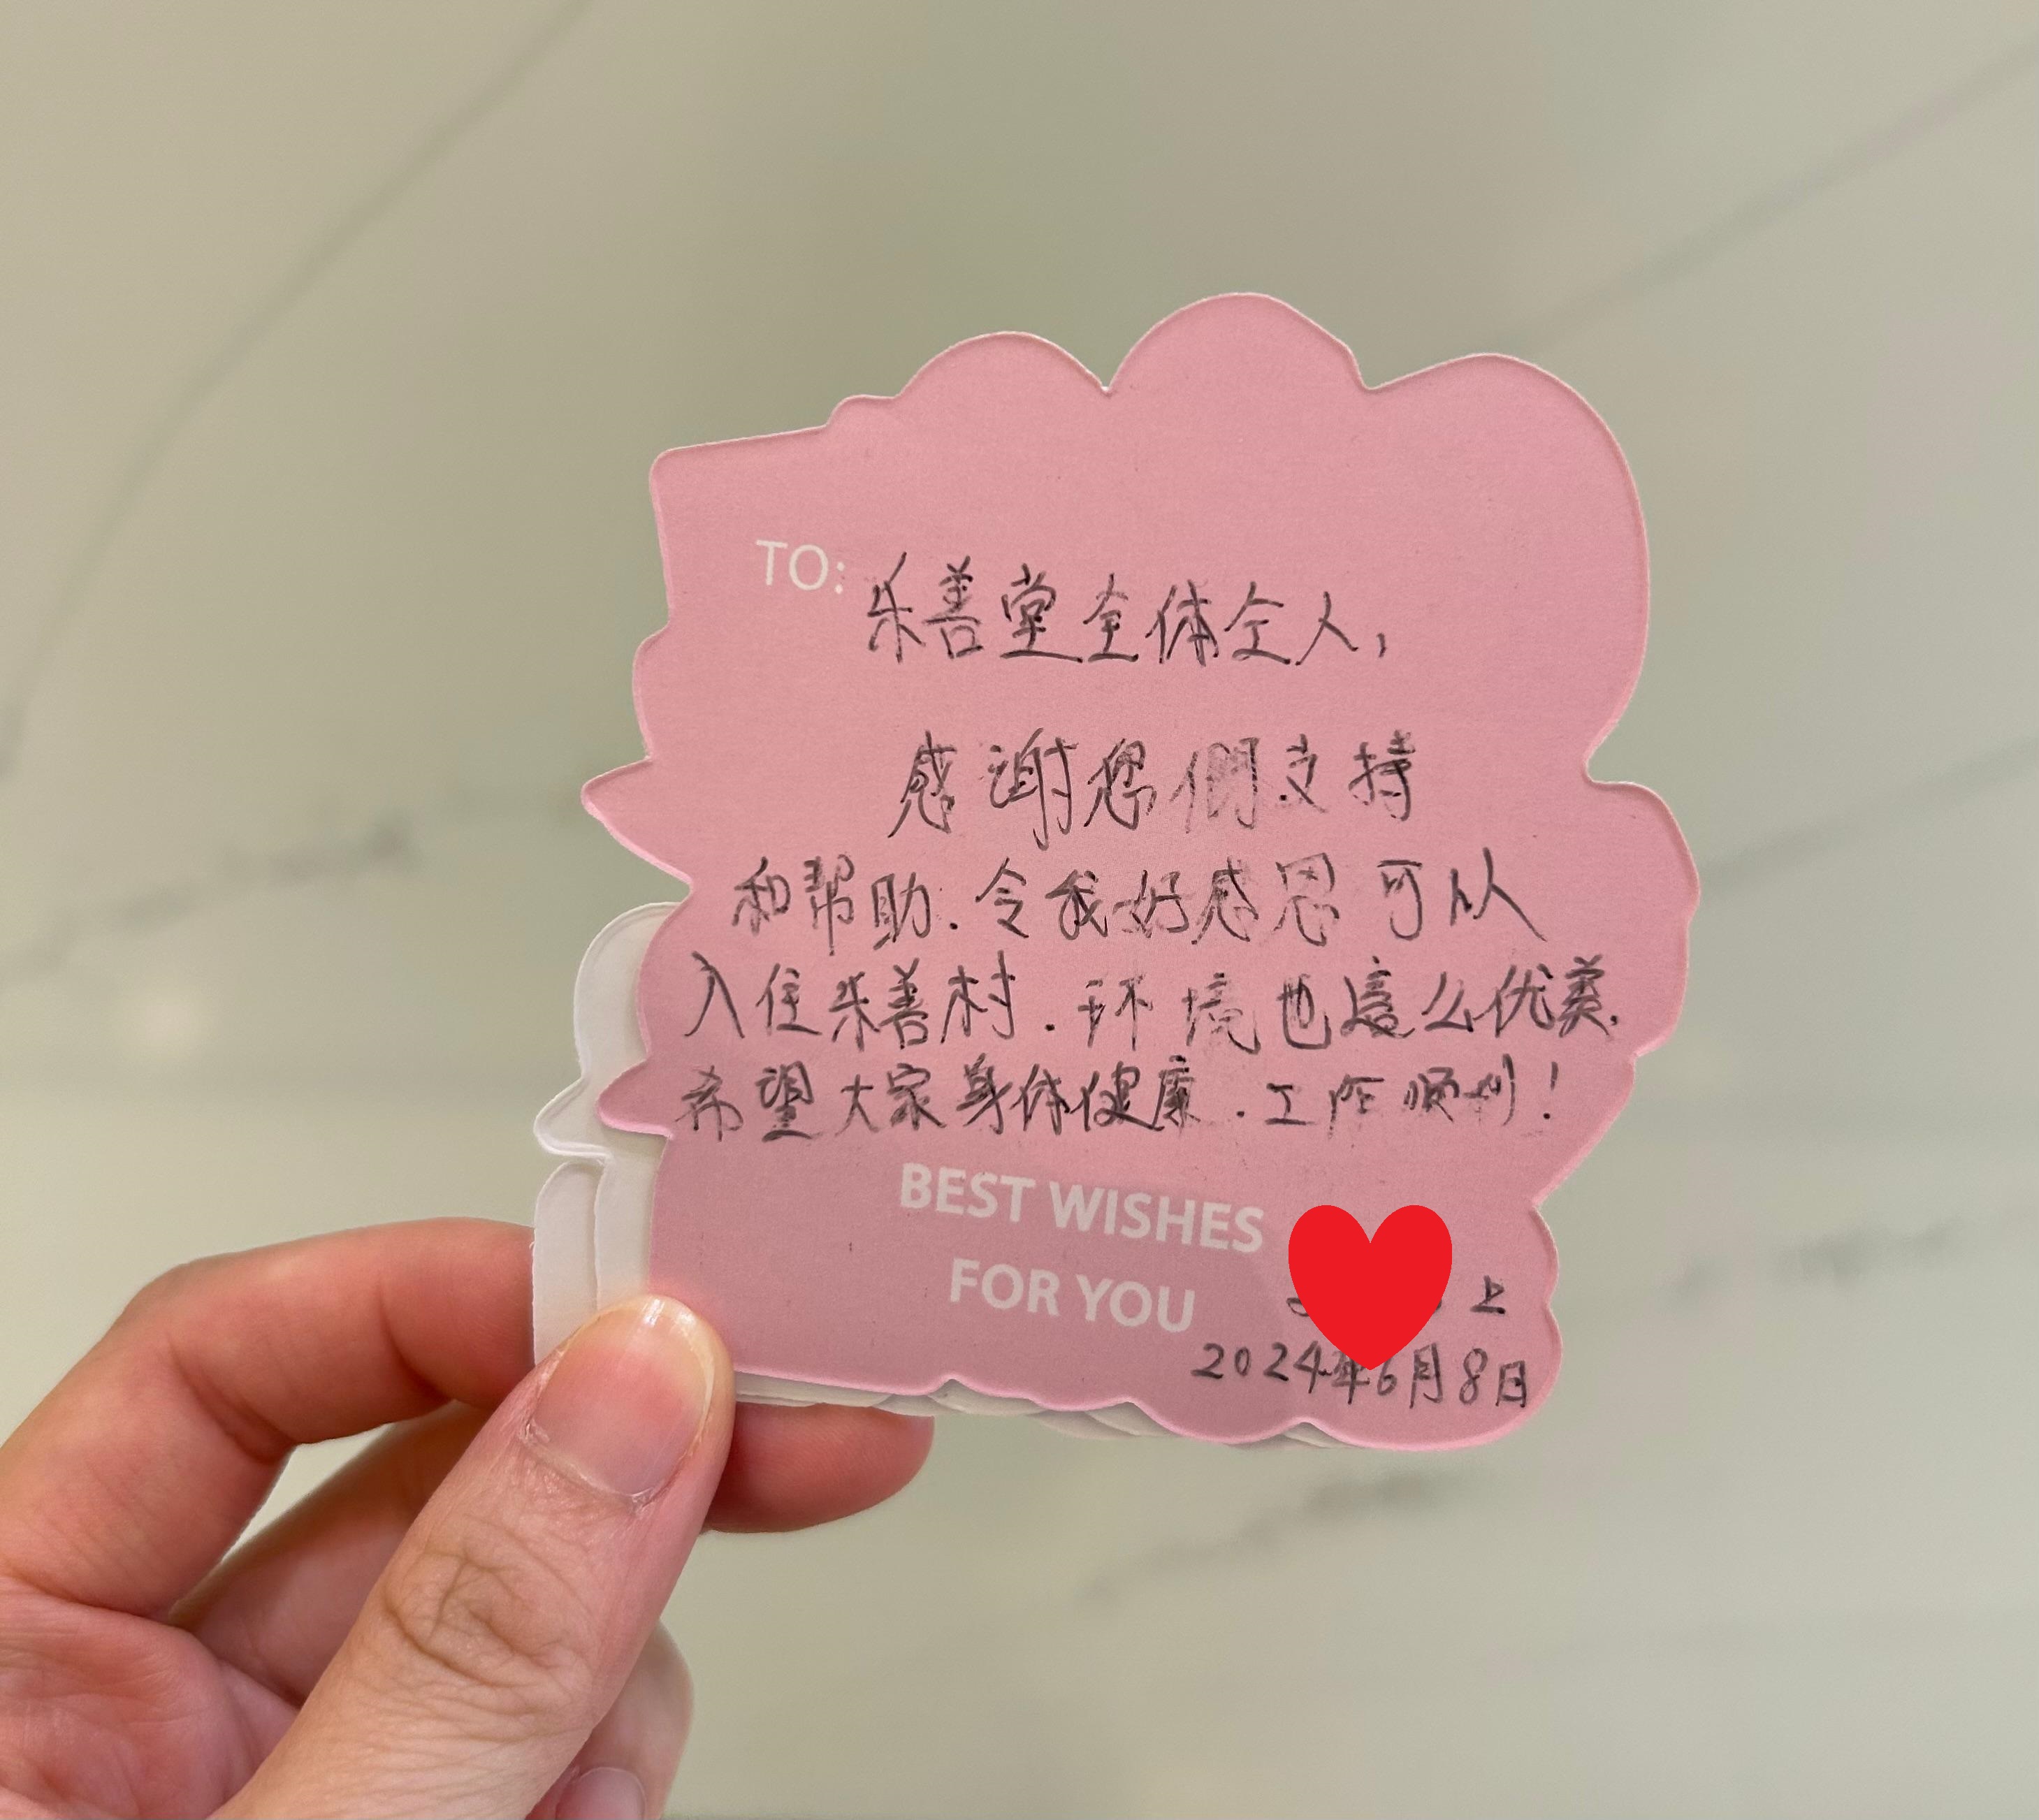 TO: 乐善堂全体仝人，
感谢您們支持
和帮助.令我好感恩可以
入住乐善村.环境也這么优美.
希望大家身体健康.工作顺利!
BEST WISHES
FOR YOU
上
2024年6月8日